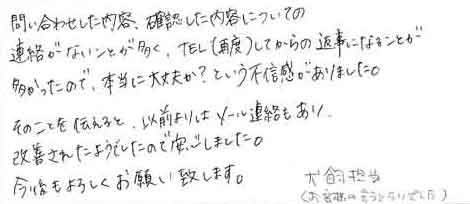 問い合わせした内容、確認した内容についての
連絡がないことが多く、TEL(再度)してからの返事になることが
多かったので、本当に大丈夫か?という不信感がありました。
そのことを伝えると、以前よりはメール連絡もあり、
改善されたようでしたので安心しました。
今後もよろしくお願い致します。
担当
(お客様の